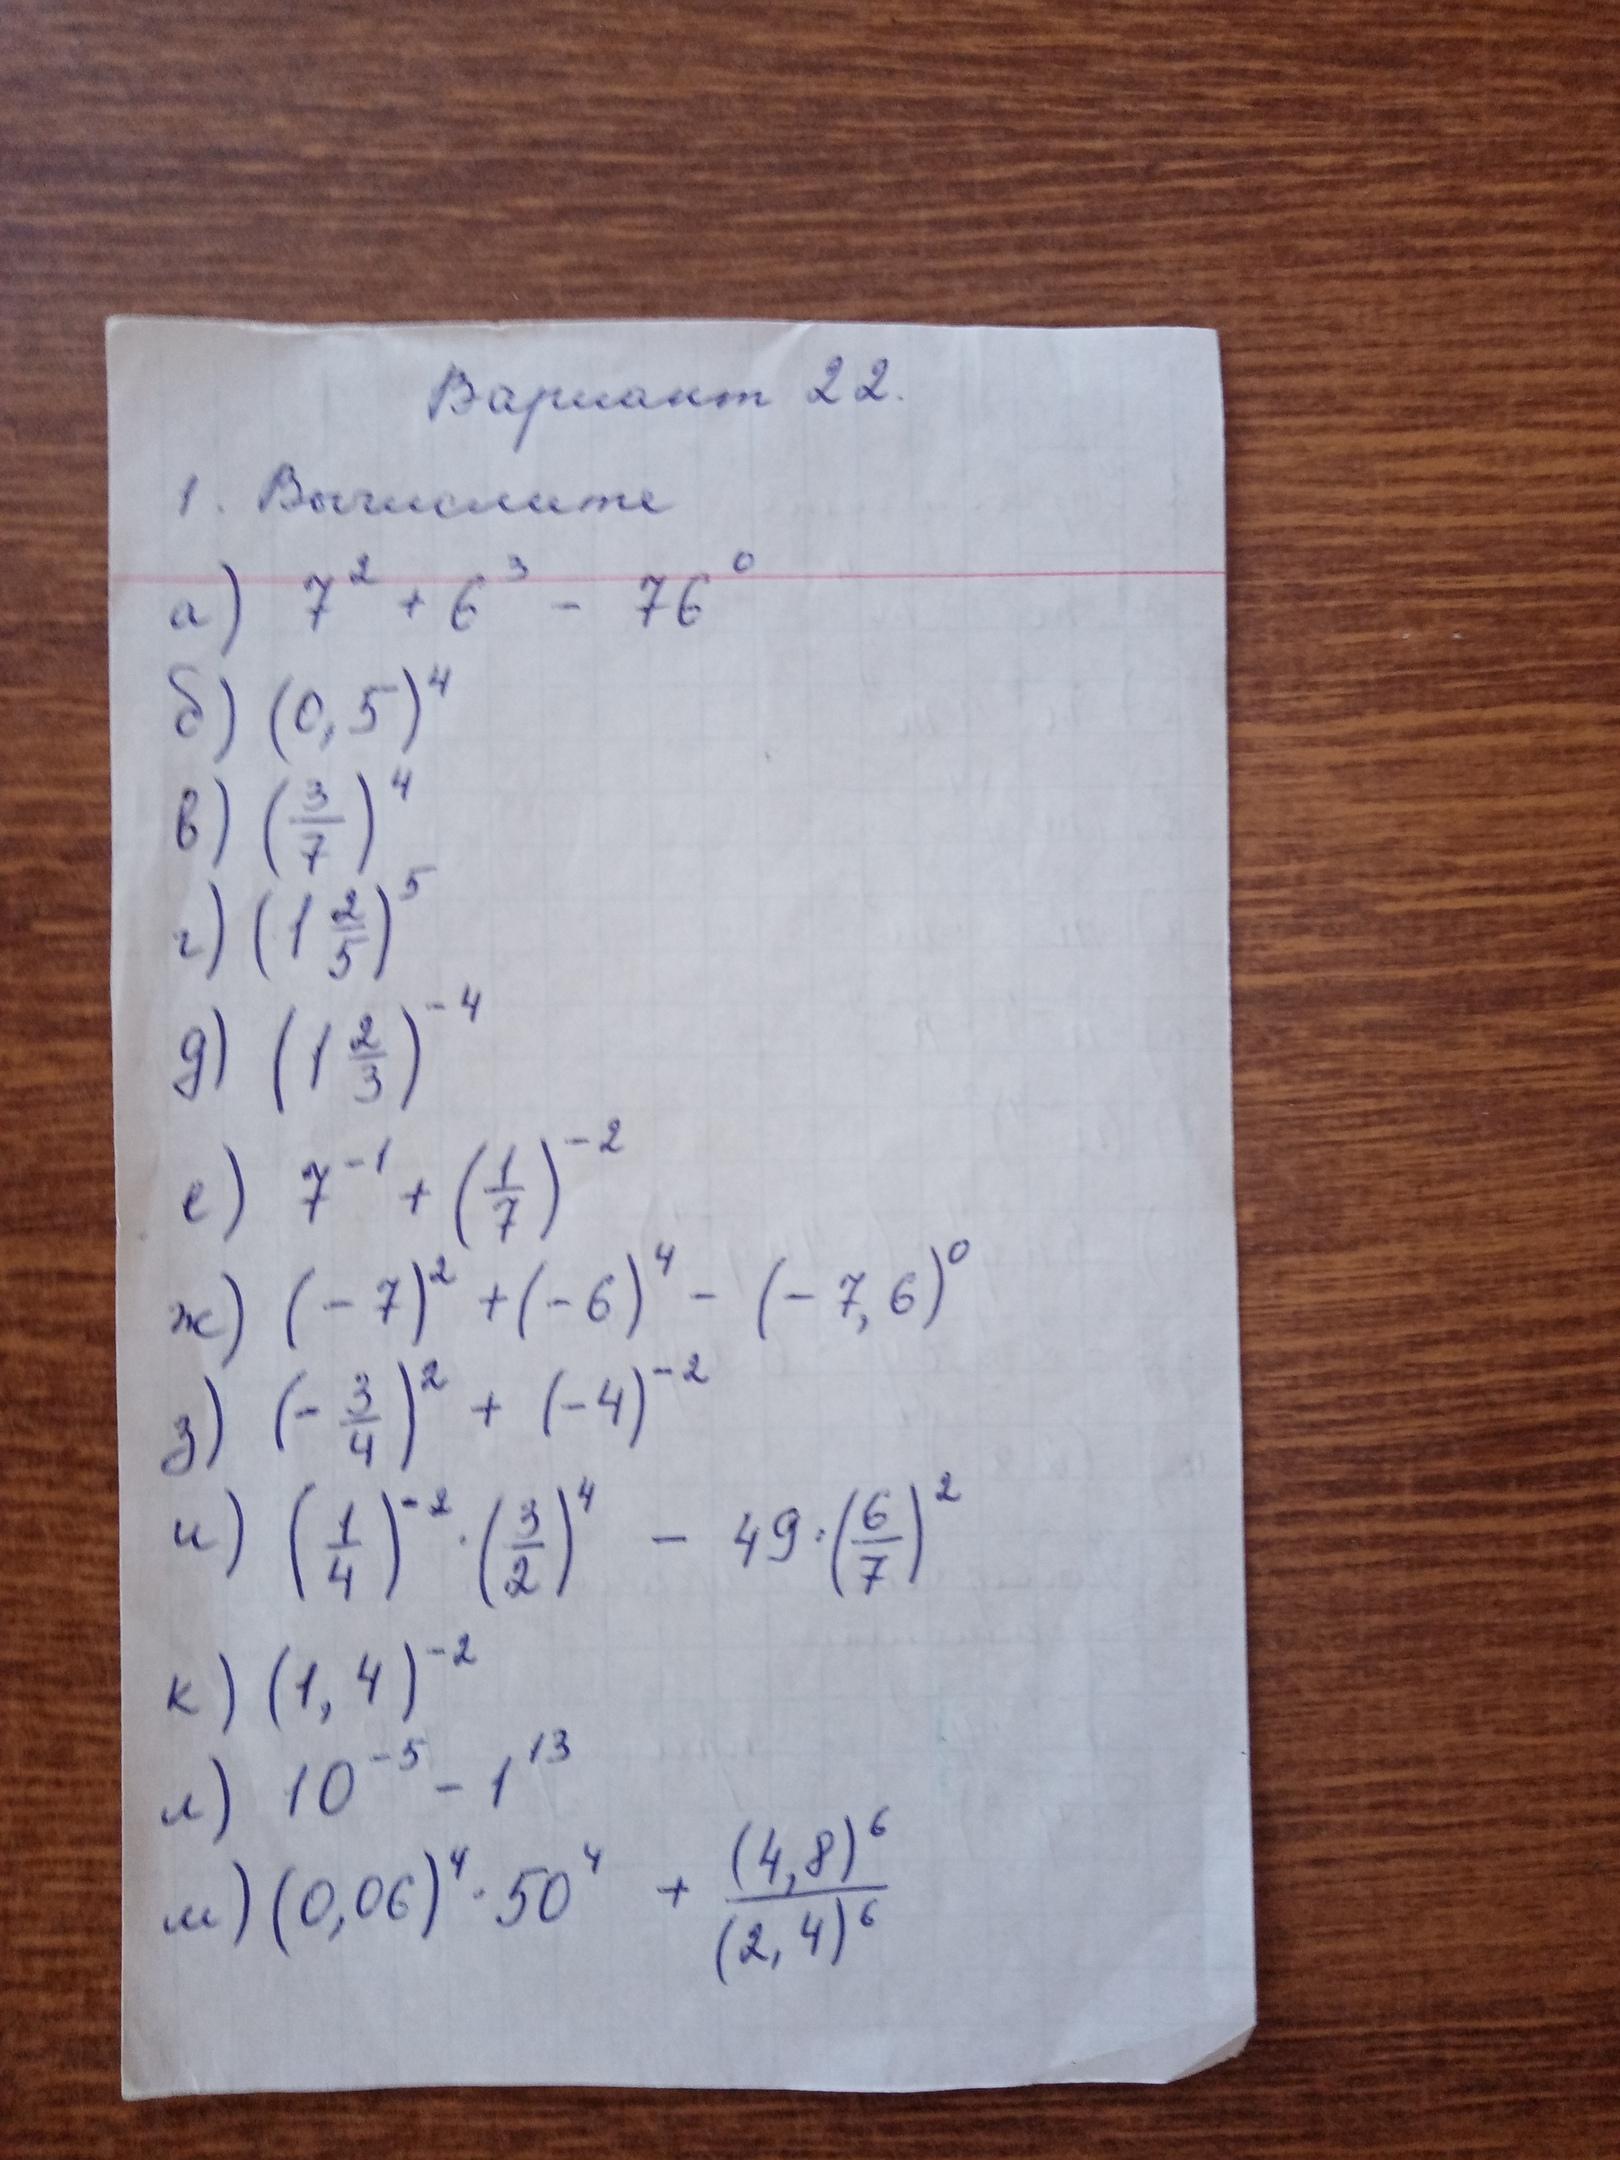 Вариант 22.
1. Вычислите
а) 7² + 6³ - 76⁰
б) (0,5)⁴
в) (3/7)⁴
г) (1 2/5)⁵
д) (1 2/3)⁻⁴
е) 7⁻¹ + (1/7)⁻²
ж) (-7)² + (-6)⁴ - (-7,6)⁰
з) (-3/4)² + (-4)⁻²
и) (1/4)⁻² · (3/2)⁴ - 49 · (6/7)²
к) (1,4)⁻²
л) 10⁻⁵ - 1¹³
м) (0,06)⁴ · 50⁴ + (4,8)⁶/(2,4)⁶